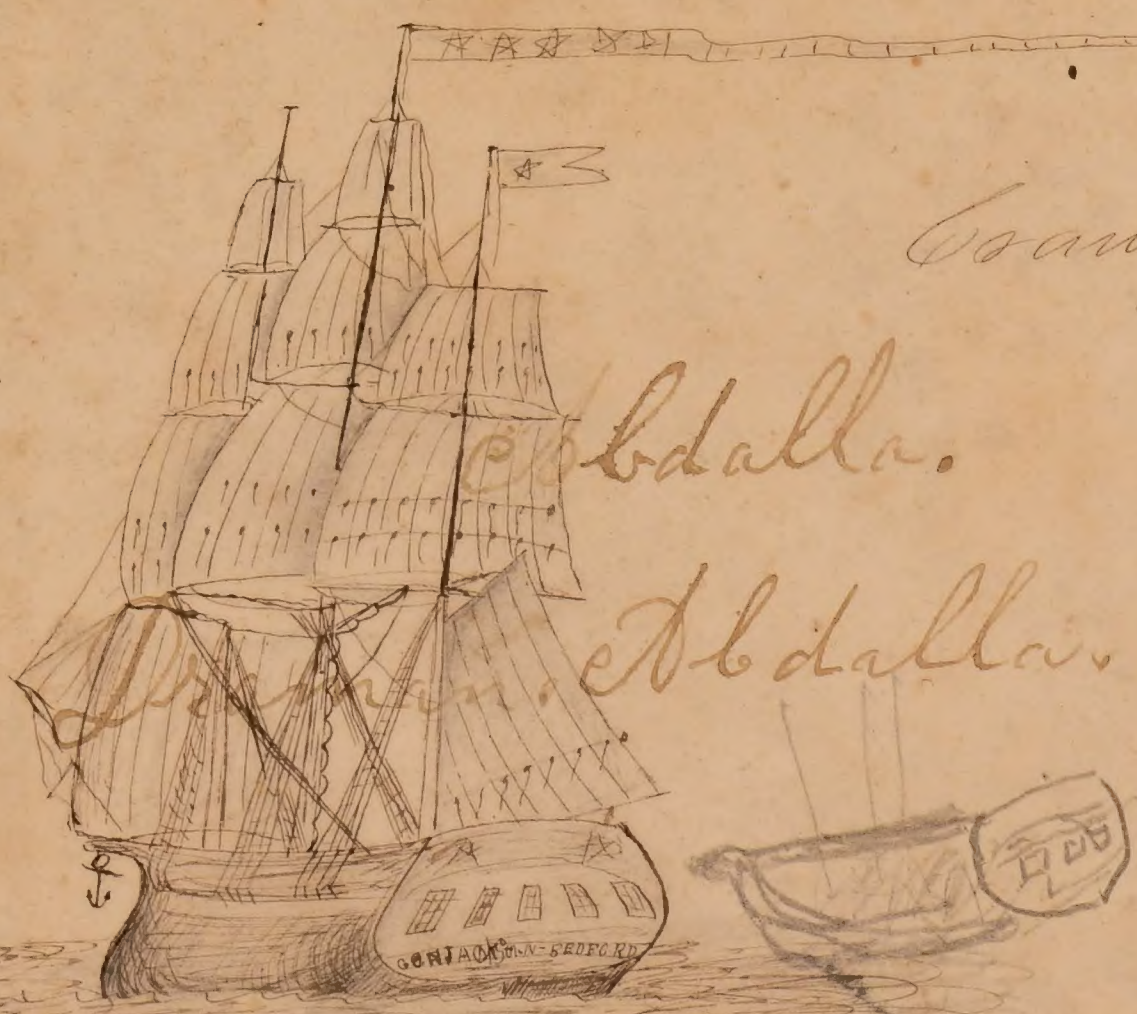 Abdalla.
Dreman. Abdalla.
GENJACKSON-BEDFORD